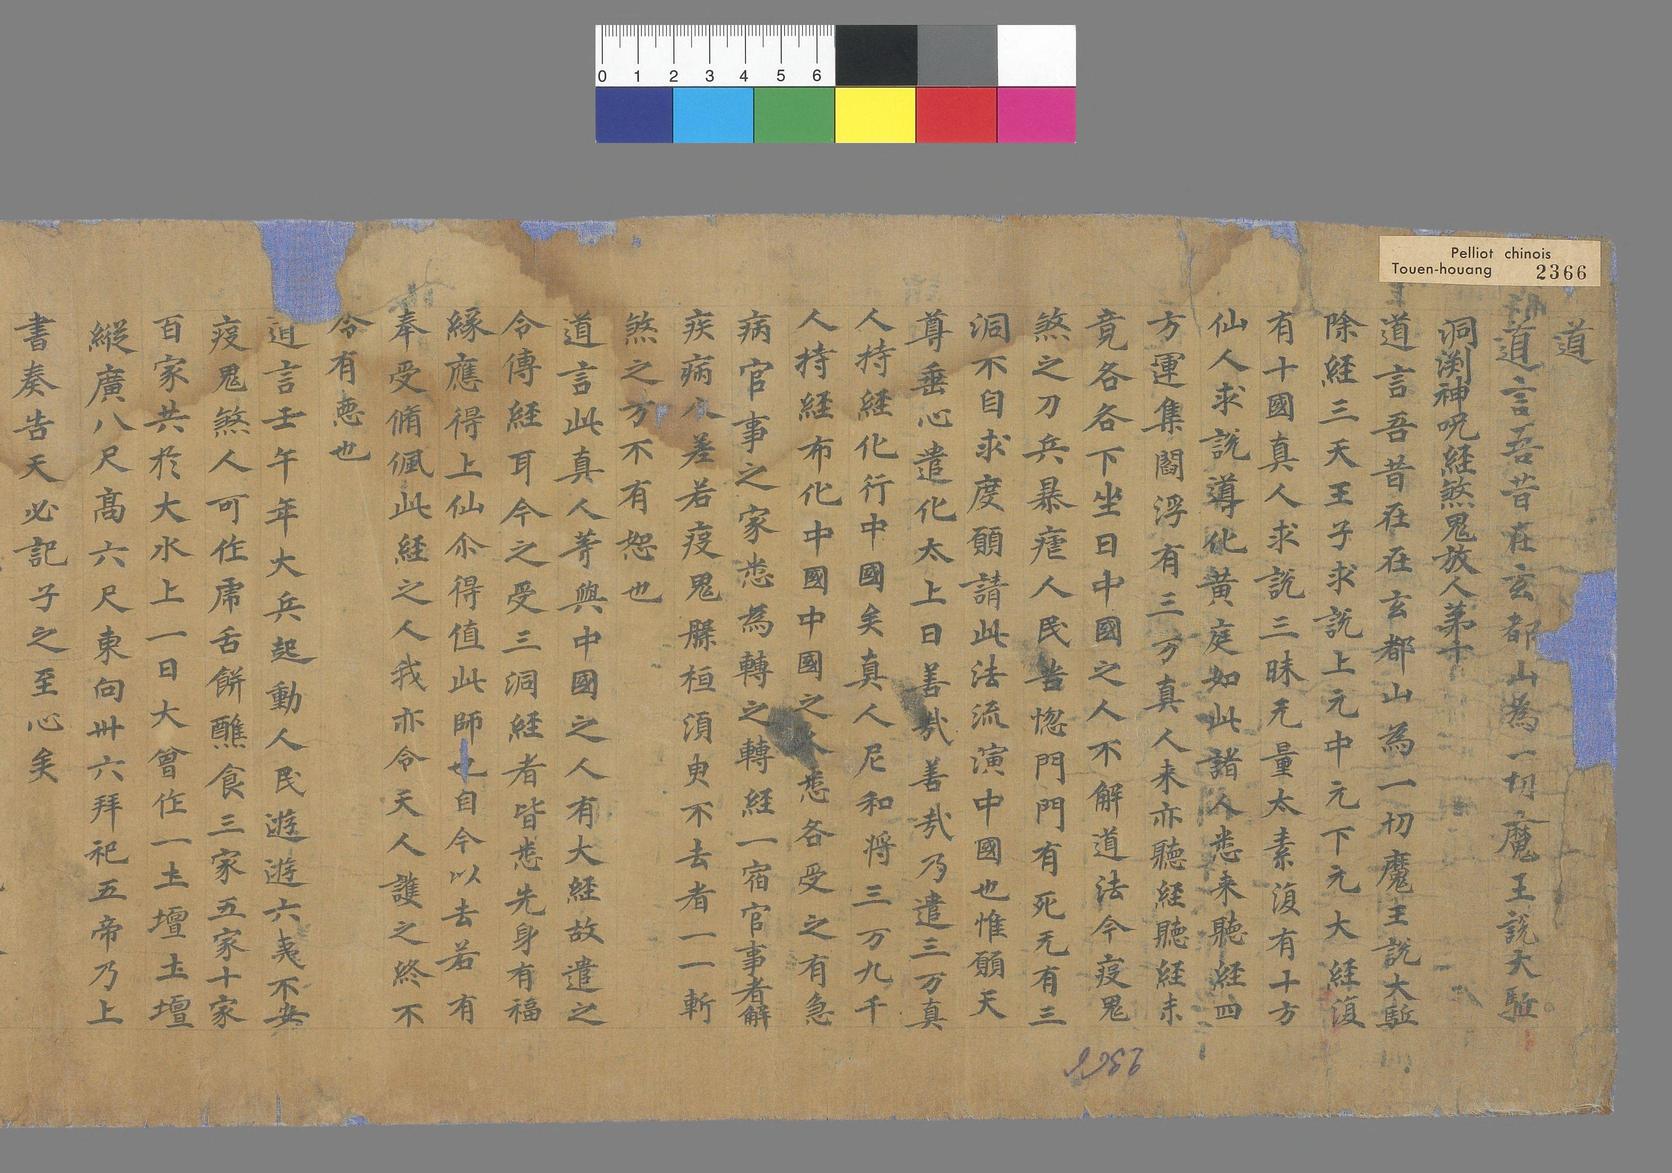 Pelliot chinois
Touen-houang 2366
0 1 2 3 4 5 6
道
道言吾昔在玄都山為一切魔王說大駈
洞渕神呪経煞鬼放人第十
道言吾昔在在玄都山為一切魔王說大駈
除経三天王子求說上元中元下元大経復
有十國真人求說三昧无量太素復有十方
仙人求說導化黃庭如此諸人悉来聽経四
方運集閻浮有三万真人来亦聽経聽経未
竟各各下坐日中國之人不解道法今疫鬼
煞之刀兵暴瘧人民苦惚門門有死无有三
洞不自求度願請此法流演中國也惟願天
尊垂心遣化太上日善哉善哉乃遣三万真
人持経化行中國矣真人尼和将三万九千
人持経布化中國中國之人悉各受之有急
病官事之家悉為轉之轉経一宿官事者解
疾病人差若疫鬼䐗桓湏臾不去者一一斬
煞之万不有恕也
道言此真人等興中國之人有大経故遣之
令傳経耳今之受三洞経者皆悉先身有福
緣應得上仙尒得值此師也自今以去若有
奉受脩佩此経之人我亦令天人護之終不
令有恚也
道言壬午年大兵起動人民遊遊六夷不安
疫鬼煞人可作席舌餅醮食三家五家十家
百家共於大水上一日大會作一土壇土壇
縱廣八尺高六尺東向卅六拜祀五帝乃上
書奏告天必記子之至心矣
2366